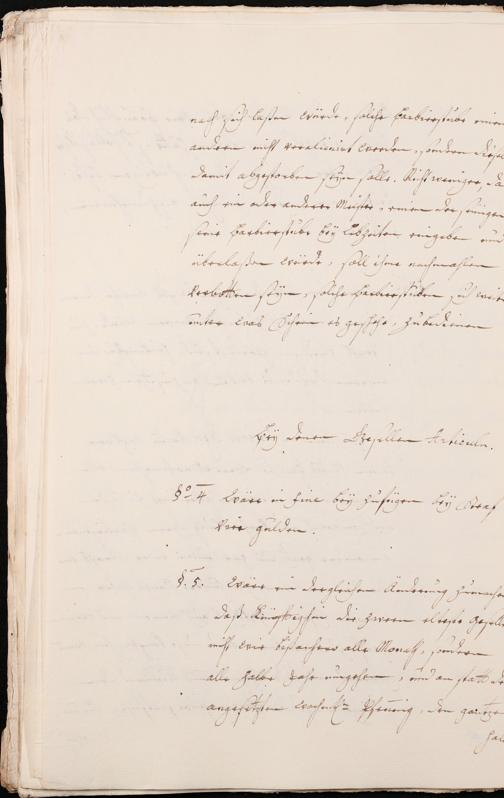 nach sich laßen würde, solche Barbierstube einem
andern nicht verallinirt werden, sondern dieselbe
damit abgestorben seyn solle. Nicht weniger, da
auch ein oder anderer Meister einem der seinigen
seine Barbierstube bey Lebzeiten eingeben und
überlaßen würde, soll ihme nachmahlen
verbotten seyn, solche Barbierstuben,
unter was Schein es geschehe, zubedienen
Bey denen Gesellen Articuln.
§º 4 Wäre in fine bey zufügen bey Straf
vier gulden.
§. 5. Wäre ein dergleichen Änderung zumachen
daß künftighin die zween älteste Gesellen
nicht wie bishero alle Monath, sondern
alle halbe Jahr umgehen, und an statt des
angesetzten wochentl: Pfennig, den gantzen